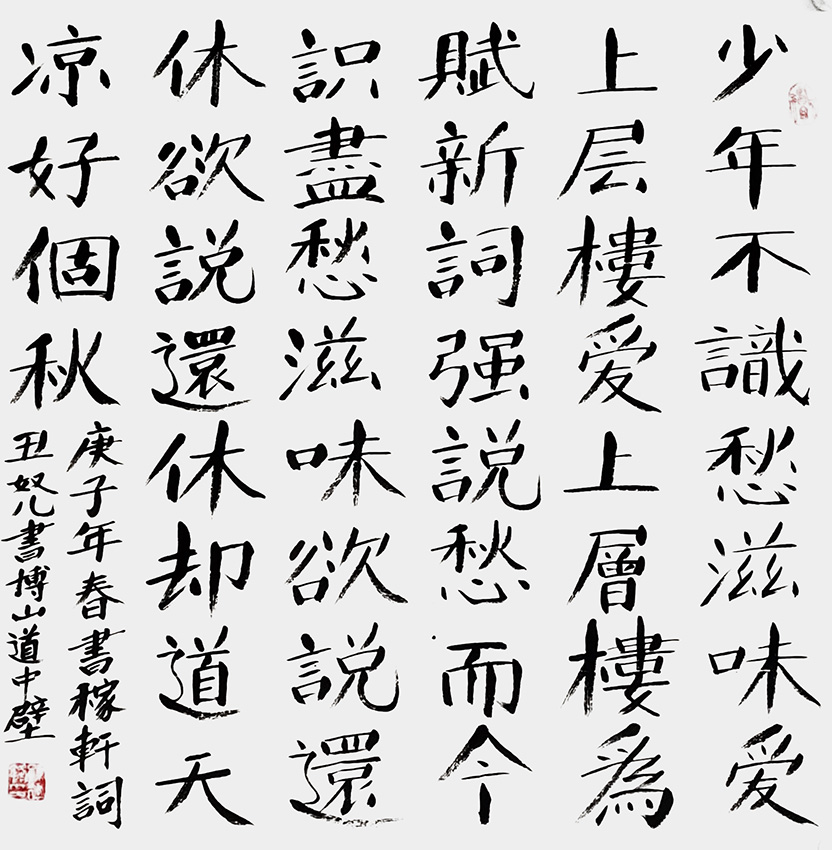 少年不識愁滋味爱
上层樓爱上層樓爲
賦新詞强説愁而今
识盡愁滋味欲説還
休欲説還休却道天
凉好個秋
庚子年春書稼軒詞
丑奴儿書博山道中壁